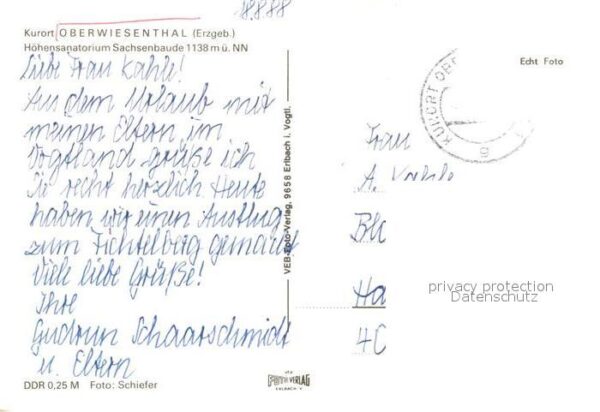 18.8.88
Kurort OBERWIESENTHAL (Erzgeb.)
Höhensanatorium Sachsenbaude 1138 m ü. NN
Liebe Frau Kahle!
Aus dem Urlaub mit
meinen Eltern im
Vogtland grüße ich
Sie recht herzlich. Heute
haben wir einen Ausflug
zum Fichtelberg gemacht
Viele liebe Grüße!
Ihre
Gudrun Schaarschmidt
u. Eltern
DDR 0,25 M Foto: Schiefer
VEB-Foto-Verlag, 9658 Erlbach i. Vogtl.
FOTO VERLAG
ERLBACH V.
Echt Foto
KURORT OBE
Frau
A. Kahle
Ha
privacy protection
Datenschutz